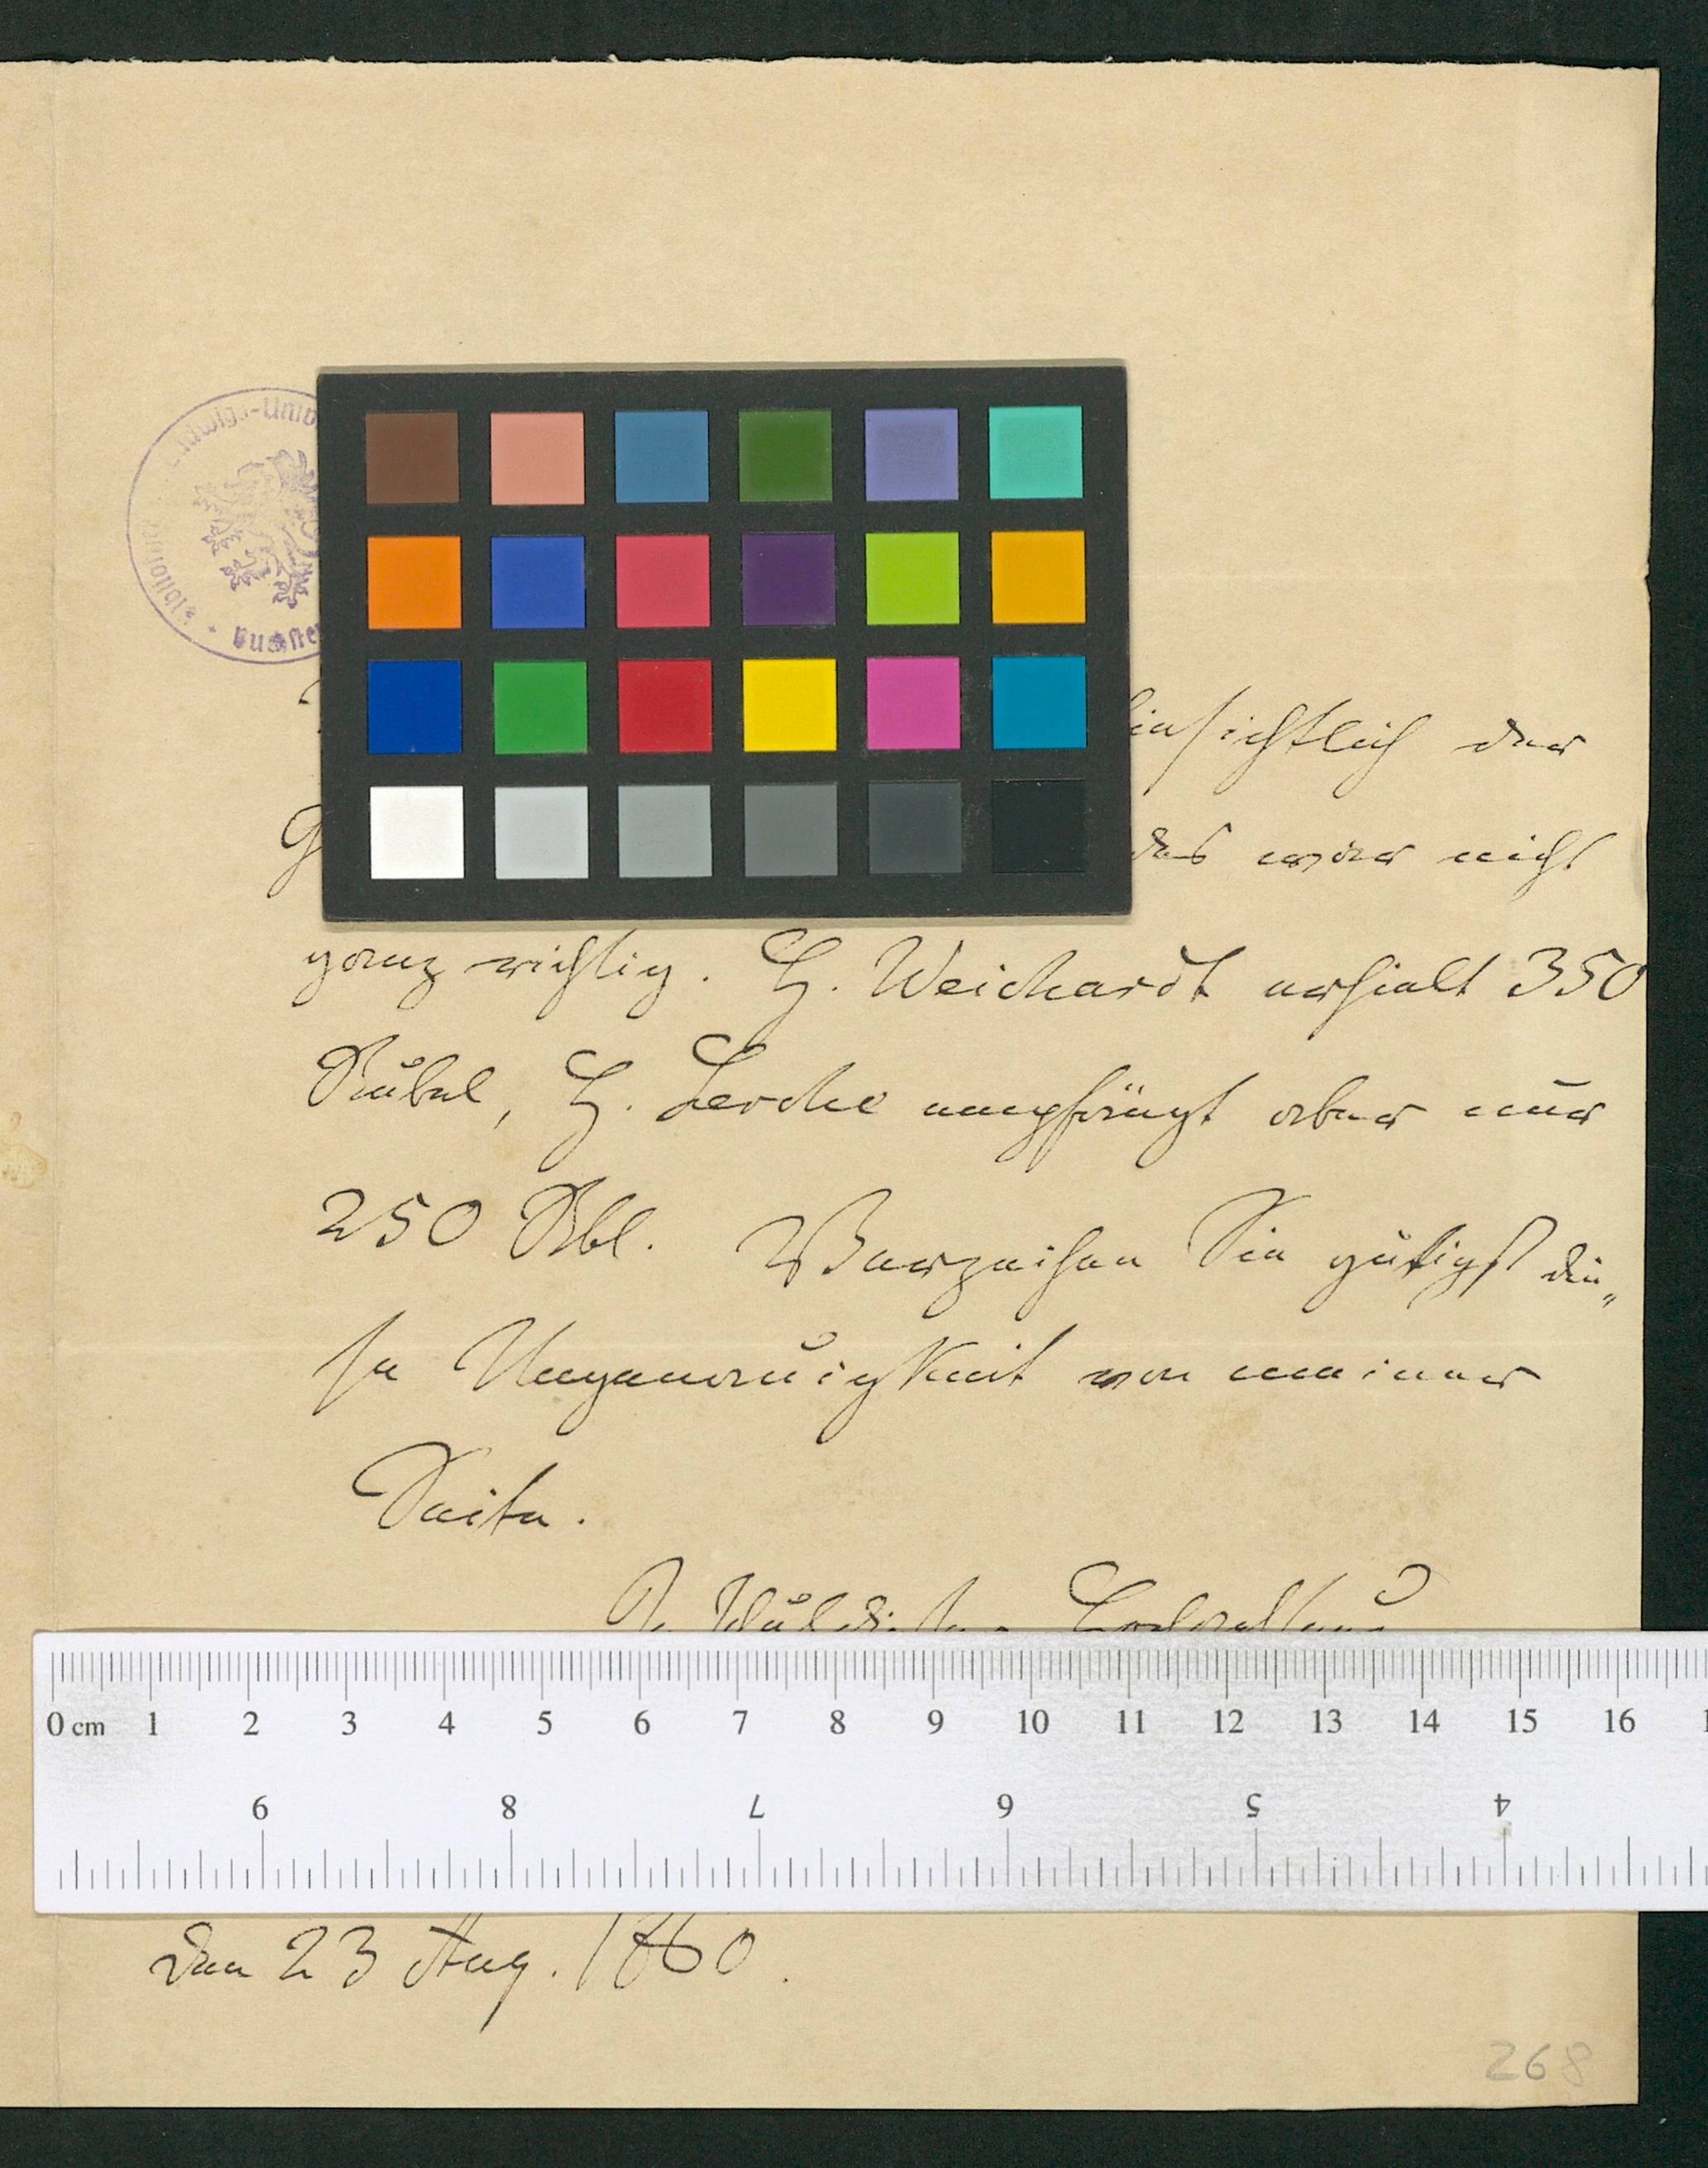 Ludwigs-Univ
hinsichtlich der
das war nicht
ganz richtig. H. Weichardt erhielt 350
Rubel, H. Lerche empfängt aber nur
250 Rbl. Verzeihen Sie gütigst die„
se Ungenauigkeit von meiner
Seite.
0 cm 1 2 3 4 5 6 7 8 9 10 11 12 13 14 15 16
9 8 7 6 5 4
den 23 Aug. 1860.
268